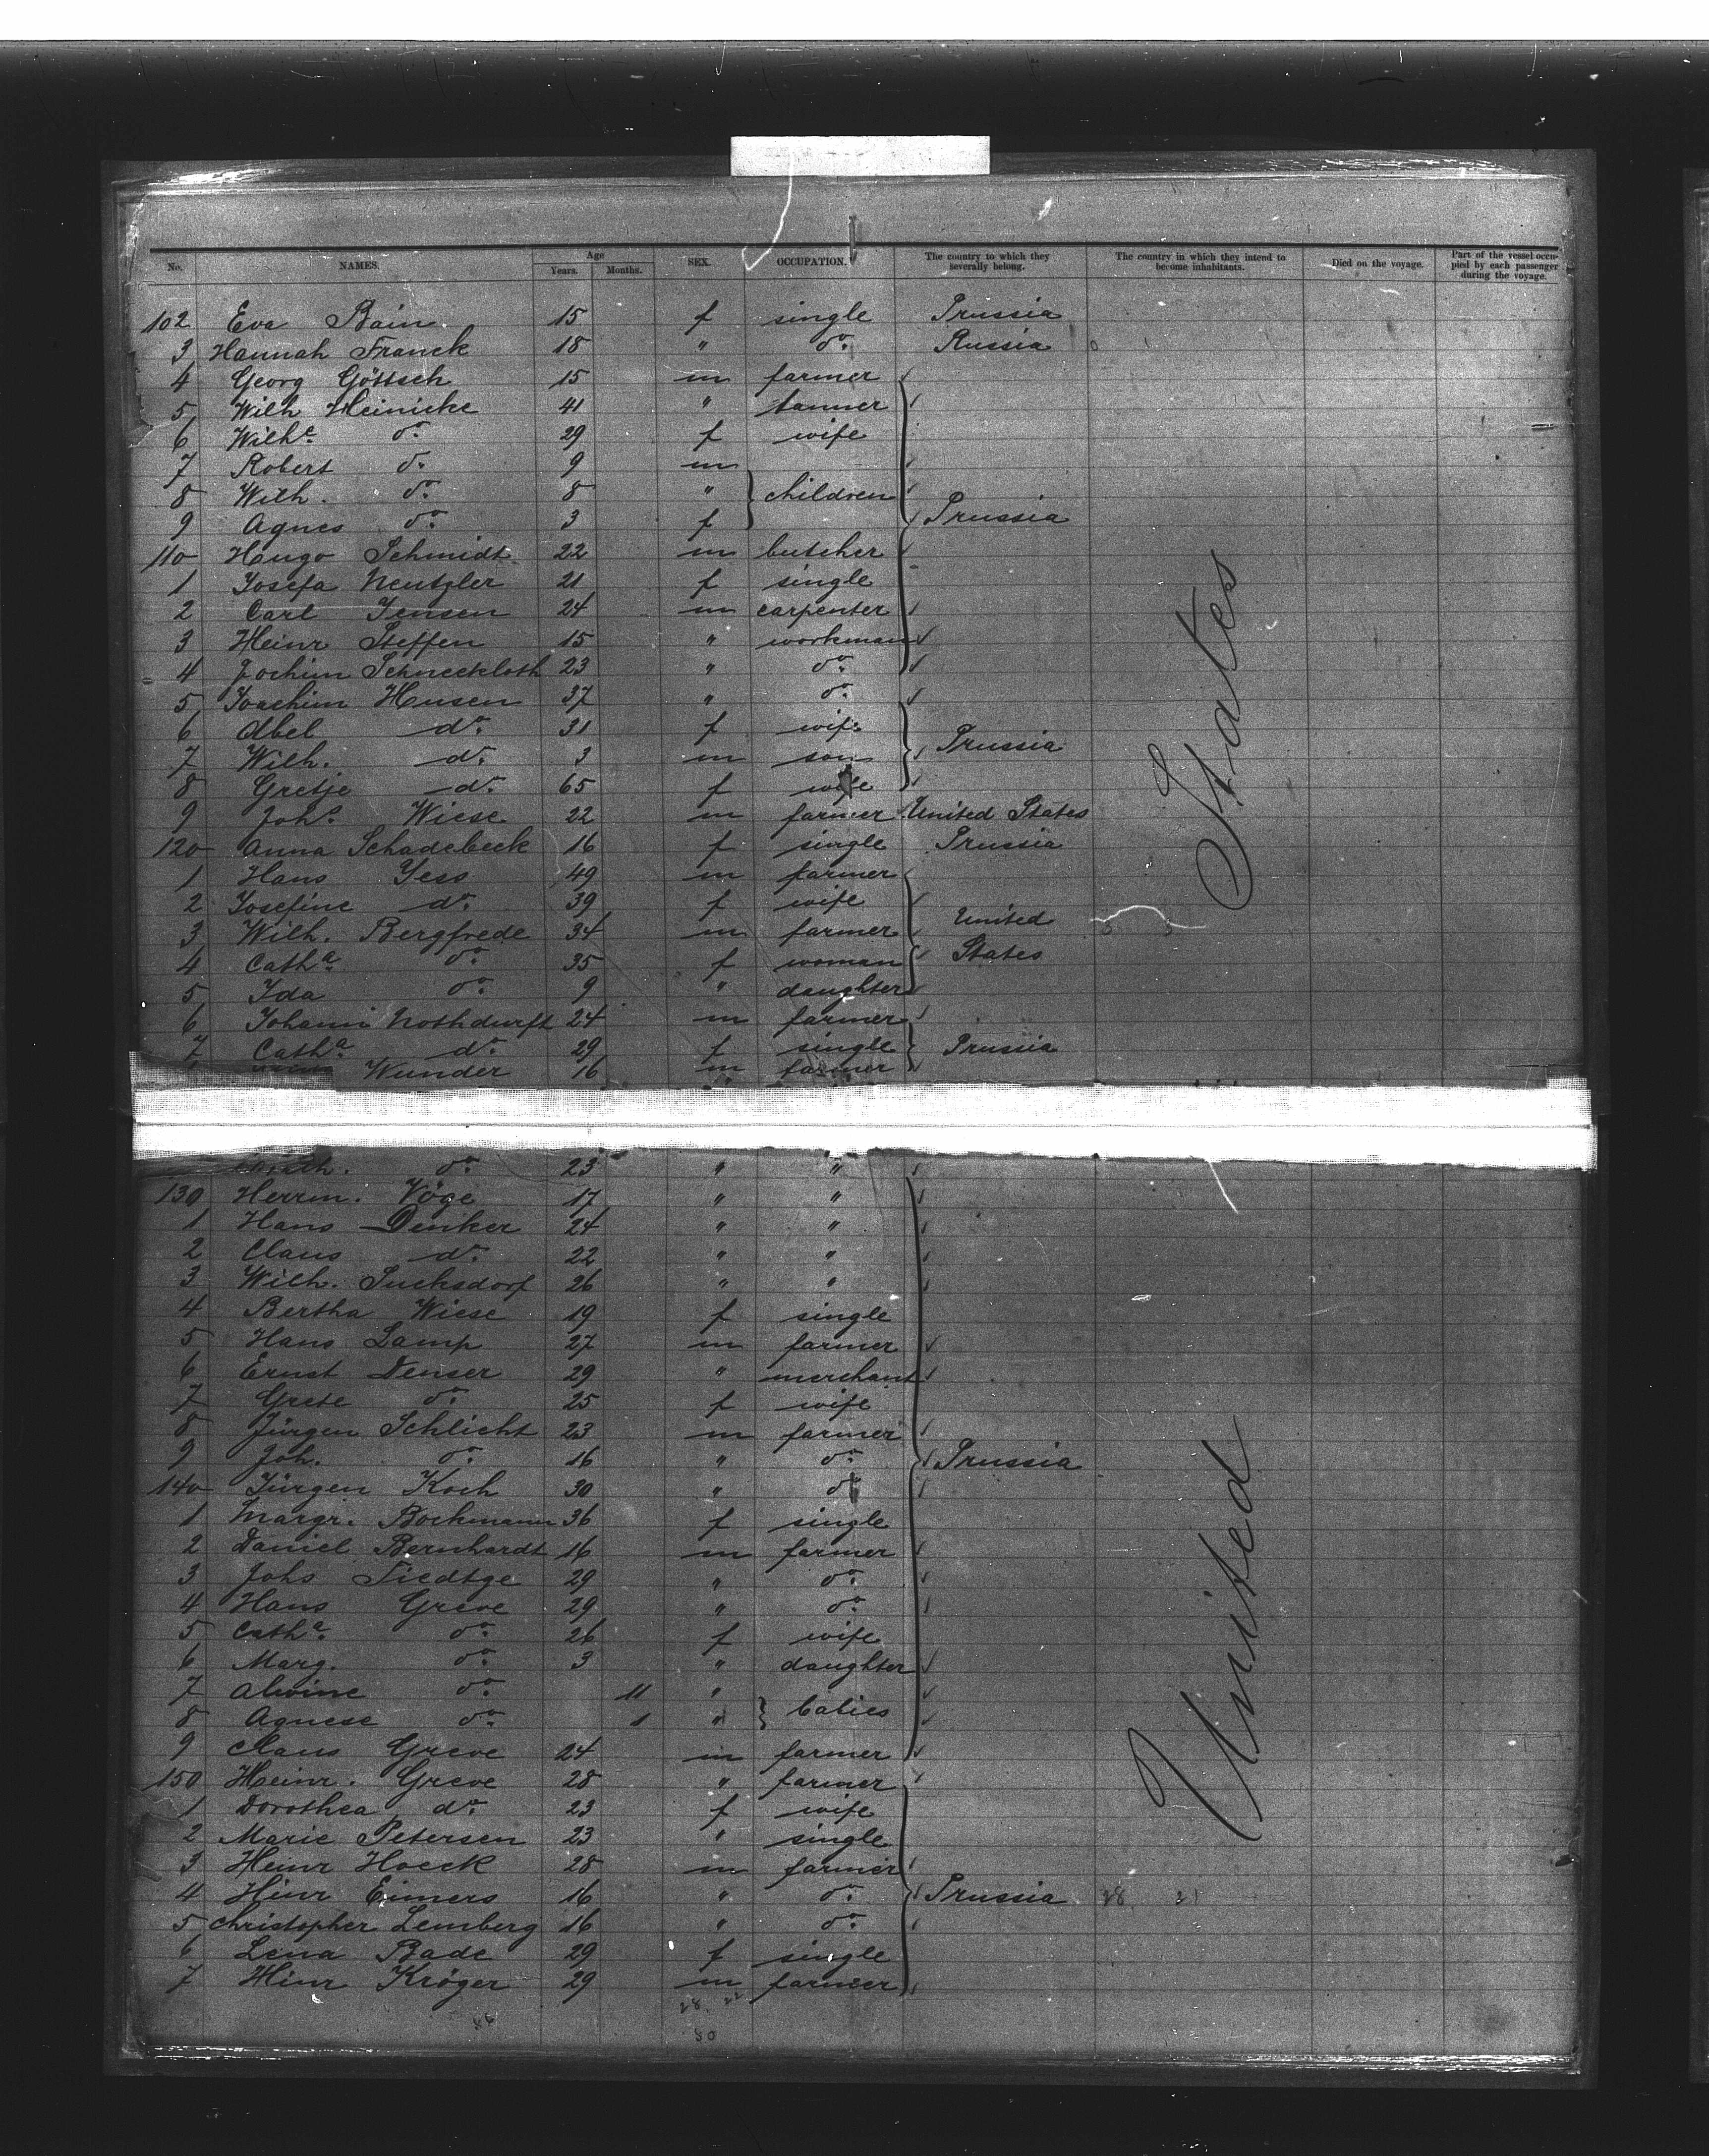 No. NAMES. Age Years. Months. SEX. OCCUPATION. The country to which they severally belong. The country in which they intend to become inhabitants. Died on the voyage. Part of the vessel occupied by each passenger during the voyage.
102 Eva Bain 15 f single Prussia
3 Hannah Franck 18 " do. Russia
4 Georg Göttsch 15 m farmer
5 Wilh Heinicke 41 " tanner
6 Wilhe. do. 29 f wife
7 Robert do. 9 m
8 Wilh. do. 8 " children
9 Agnes do. 3 f Prussia
110 Hugo Schmidt 22 m butcher
1 Josefa Neutzler 21 f single
2 Carl Jensen 24 m carpenter
3 Heinr Steffen 15 " workman
4 Jochim Schneekloth 23 " do.
5 Joachim Hensen 37 " do.
6 Abel do. 31 f wife
7 Wilh. do. 3 m son Prussia
8 Gretje do. 65 f wife
9 Johs. Wiese 22 m farmer United States
120 Anna Schadebeck 16 f single Prussia
1 Hans Jess 49 m farmer
2 Josefine do. 39 f wife
3 Wilh. Bergfrede 34 m farmer United
4 Catha. do. 35 f woman States
5 Ida do. 9 " daughter
6 Johann Nothdurft 24 m farmer
7 Catha. do. 29 f single Prussia
Wunder 16 m farmer
do. 23 " "
130 Herrm. Vöge 17 " "
1 Hans Denker 24 " "
2 Claus do. 22 " "
3 Wilh. Sucksdorf 26 " "
4 Bertha Wiese 19 f single
5 Hans Lamp 27 m farmer
6 Ernst Denser 29 " merchant
7 Grete do. 25 f wife
8 Jürgen Schlicht 23 m farmer
9 Joh. do. 16 " do. Prussia
140 Jürgen Koch 30 " do.
1 Margr. Bockmann 36 f single
2 Daniel Bernhardt 16 m farmer
3 Johs Tiedtge 29 " do.
4 Hans Greve 29 " do.
5 Catha. do. 26 f wife
6 Marg. do. 3 " daughter
7 Alwine do. 11 "
8 Agnese do. 1 " babies
9 Claus Greve 24 m farmer
150 Heinr. Greve 28 " farmer
1 Dorothea do. 23 f wife
2 Marie Petersen 23 " single
3 Heinr Hoeck 28 m farmer
4 Hinr Eimers 16 " do. Prussia
5 Christopher Lemberg 16 " do.
6 Lena Bade 29 f single
7 Hinr Kröger 29 m farmer
United States